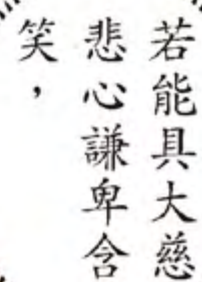 若能具大慈
悲心謙卑含
笑，